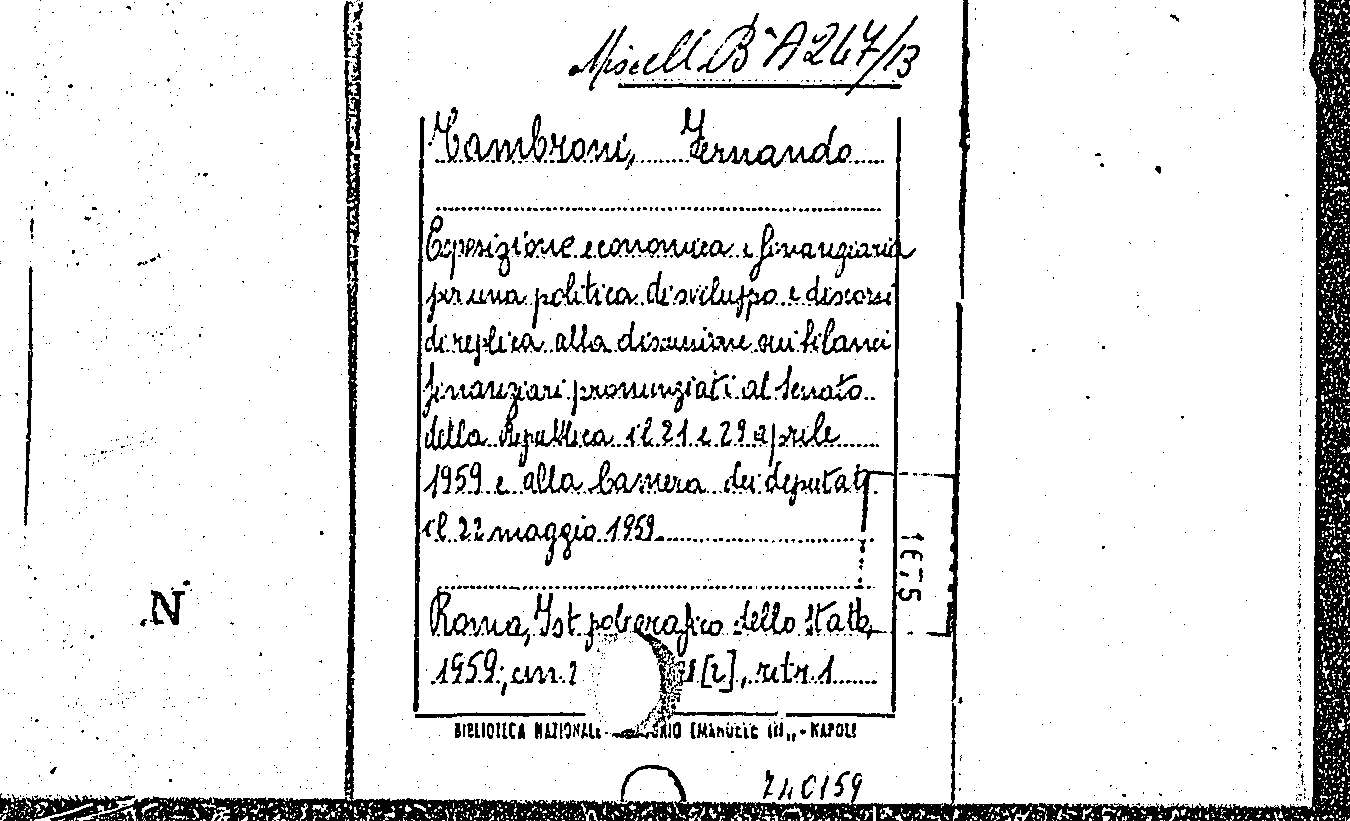 Miscell. B A 247/13
Tambroni, Fernando
Esposizione economica e finanziaria
per una politica di sviluppo e discorsi
di replica alla discussione sui bilanci
finanziari pronunziati al Senato
della Repubblica il 21 e 29 aprile
1959 e alla Camera dei deputati
il 22 maggio 1959.
Roma, Ist poligrafico dello Stato,
1959; cm. 2 [2], ritr. 1
BIBLIOTECA NAZIONALE EMANUELE III,, - NAPOLI
1675
N